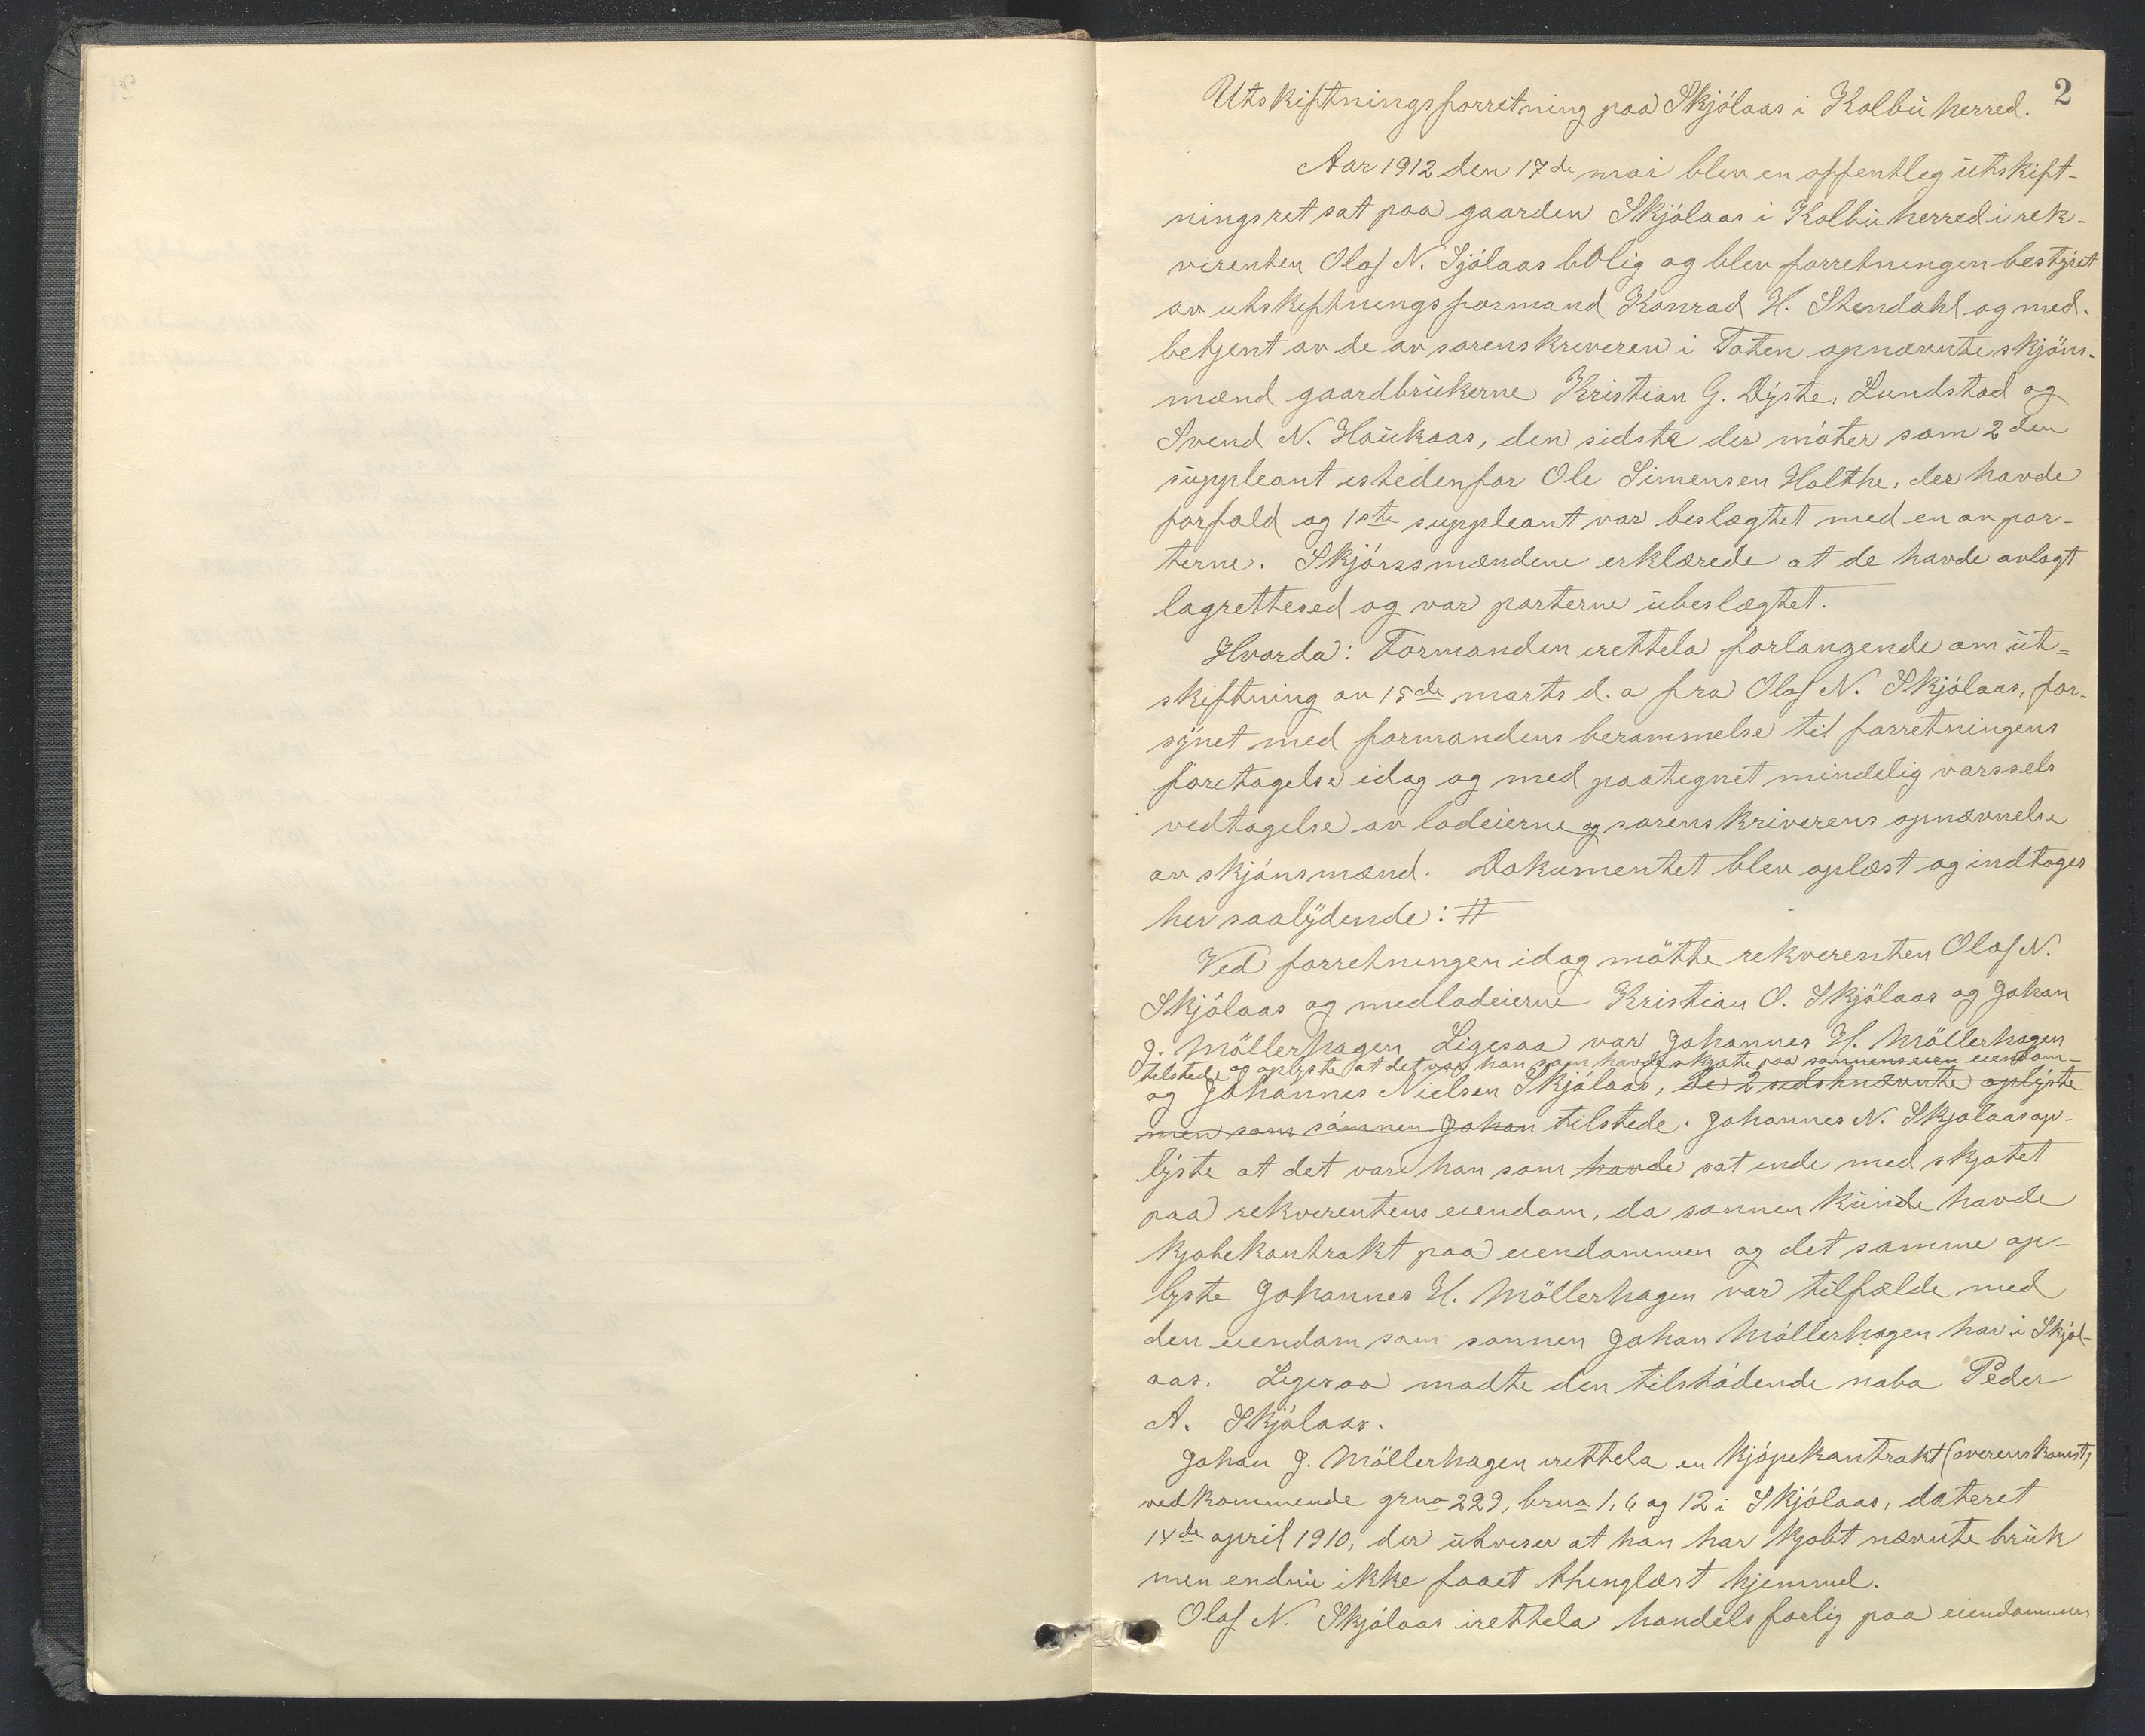 2
Utskiftningsforretning paa Skjölaas i Kolbu herred.
Aar 1912 den 17de mai blev en offentleg utskift-
ningsret sat paa gaarden Skjölaas i Kolbu herred i rek-
virenten Olaf N. Sjölaas bolig og blev forretningen bestyret
av utskiftningsformand Konrad H. Stendahl og med-
betjent av de av sorenskriveren i Toten opnævnte skjöns-
mænd gaardbrukerne Kristian G. Dyste, Lundstad og
Svend N. Haukaas, den sidste der möter som 2den
suppleant istedenfor Ole Simensen Holthe, der havde
forfald og 1ste suppleant var beslægtet med en av par-
terne. Skjönsmændene erklærede at de havde avlagt
lagretteed og var parterne ubeslægtet.
Hvorda: Formanden irettela forlangende om ut-
skiftning av 15de marts d. a fra Olaf N. Skjölaas, for-
synet med formandens berammelse til forretningens
foretagelse idag og med paategnet mindelig varssels
vedtagelse av lodeierne og sorenskriverens opnævnelse
av skjönsmænd. Dokumentet blev oplæst og indtages
her saalydende: #
Ved forretningen idag mötte rekverenten Olaf N.
Skjölaas og medlodeierne Kristian O. Skjölaas og Johan
J. Möllerhagen Ligesaa var Johannes H. Möllerhagen
tilstede og oplyste at det var han som havde skjøte paa sønnens eien eiendom-
og Johannes Nielsen Skjölaas, de 2 sidstnævnte oplyste
men som sönnen Johan tilstede. Johannes N. Skjolaas op-
lyste at det var han som havde sat inde med skjøtet
paa rekverentens eiendom, da sønnen kunde havde
kjøbekontrakt paa eiendommen og det samme op-
lyste Johannes H. Möllerhagen var tilfælde med
den eiendom som sonnen Johan Möllerhagen har i Skjöl-
aas. Ligesaa mødte den tilstödende nabo Peder
A. Skjölaas.
Johan J. Möllerhagen irettela en kjöpekontrakt (overenskomst)
vedkommende grno 229, brno 1, 6 og 12 i Skjölaas, dateret
14de april 1910, der utviser at han har kjøbt nævnte bruk
men endnu ikke faaet thinglæst hjemmel.
Olaf N. Skjölaas irettela handelsforlig paa eiendommen